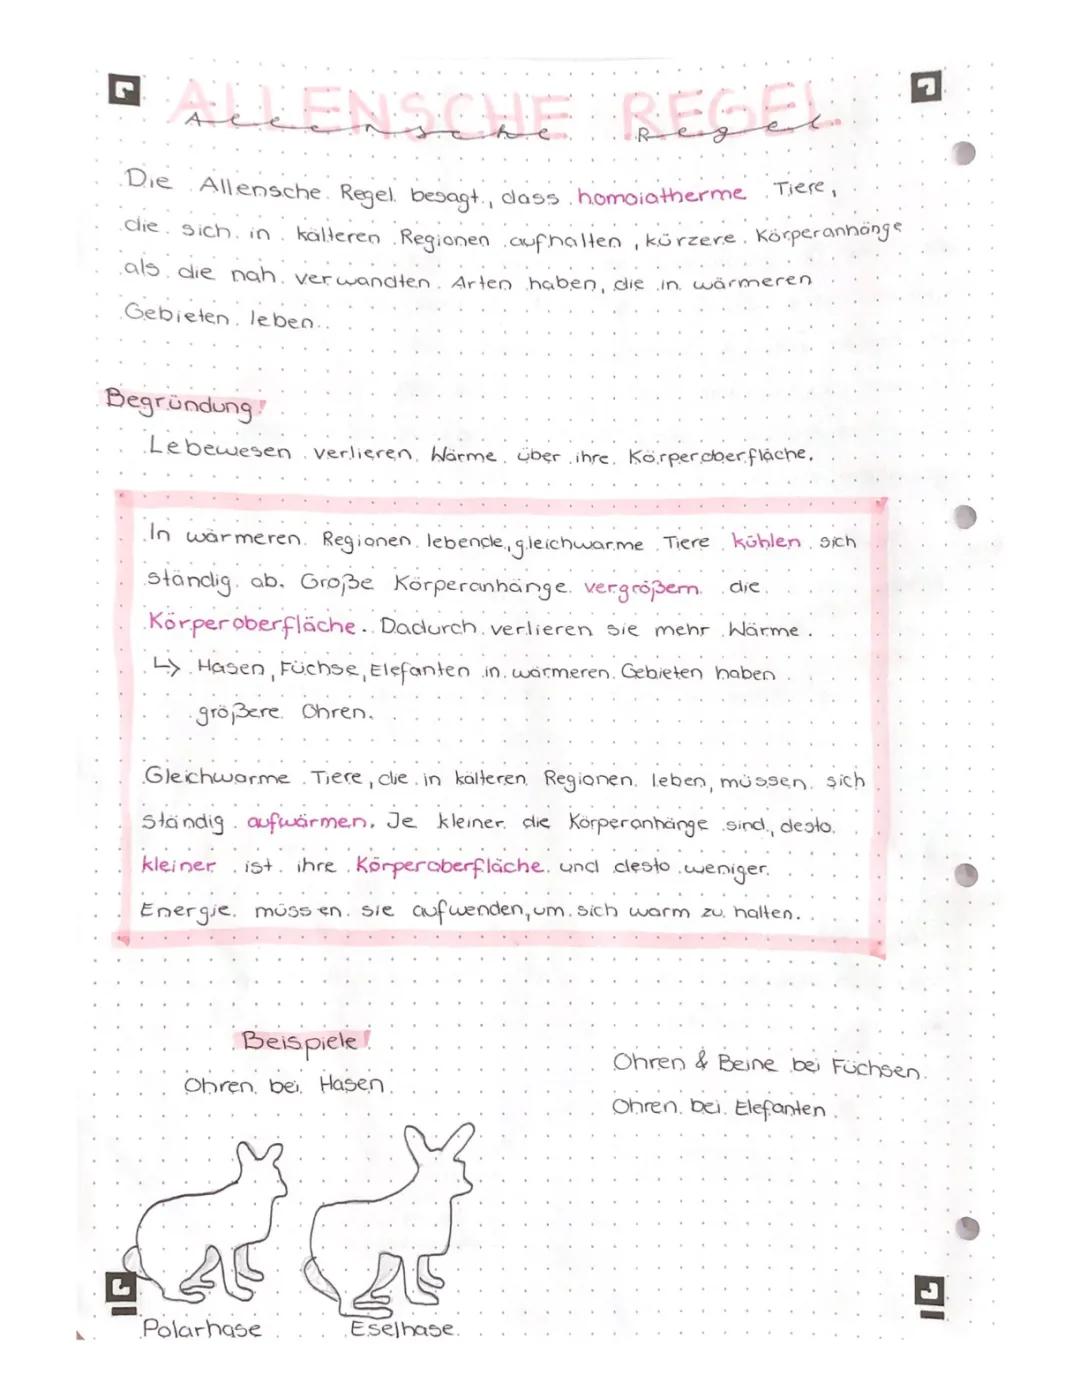 ALLENSCHE REGEL
Allensche Regel
Die Allensche Regel besagt, dass homoiotherme Tiere,
die sich in kälteren Regionen aufhalten, kürzere Körperanhänge
als die nah verwandten Arten haben, die in wärmeren
Gebieten leben.
Begründung!
Lebewesen verlieren Wärme über ihre Körperoberfläche.
In wärmeren Regionen lebende, gleichwarme Tiere kühlen sich
ständig ab. Große Körperanhänge vergrößern die
Körperoberfläche. Dadurch verlieren sie mehr Wärme.
↳ Hasen, Füchse, Elefanten in wärmeren Gebieten haben
größere Ohren.
Gleichwarme Tiere, die in kälteren Regionen leben, müssen sich
ständig aufwärmen. Je kleiner die Körperanhänge sind, desto
kleiner ist ihre Körperoberfläche und desto weniger
Energie müssen sie aufwenden, um sich warm zu halten.
Beispiele!
Ohren bei Hasen
Ohren & Beine bei Füchsen
Ohren bei Elefanten
Polarhase
Eselhase